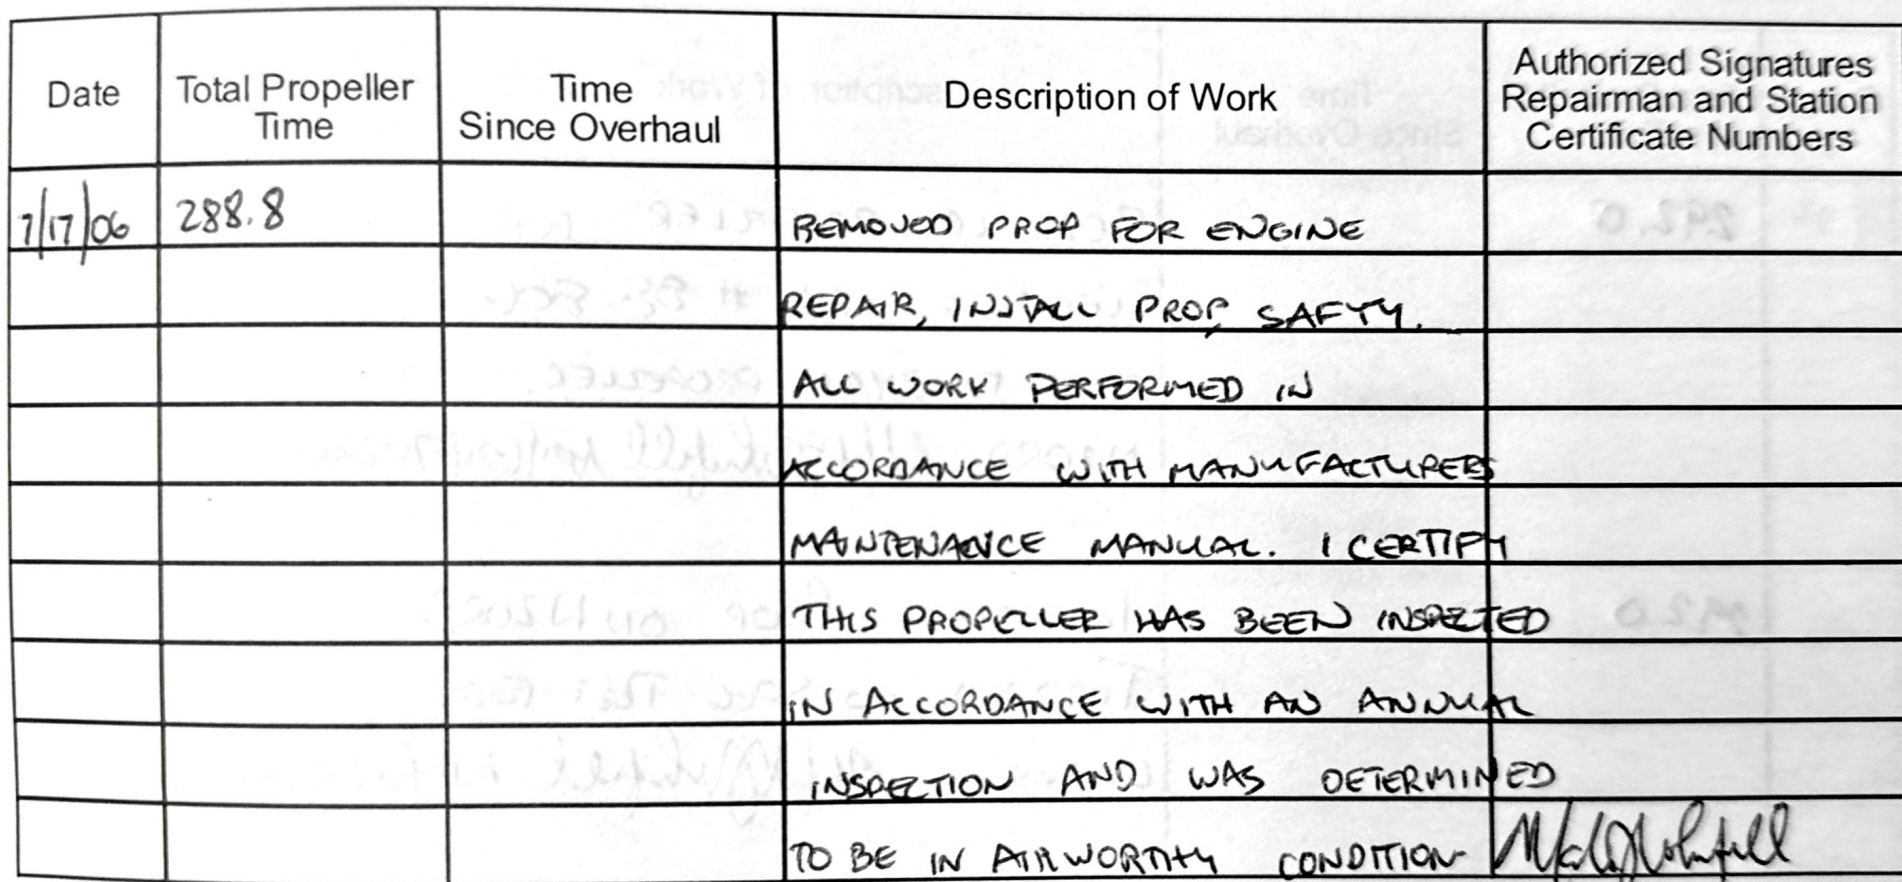 Date Total Propeller Time Time Since Overhaul Description of Work Authorized Signatures Repairman and Station Certificate Numbers
7/17/06 288.8 REMOVED PROP FOR ENGINE
REPAIR, INSTALL PROP, SAFTY.
ALL WORK PERFORMED IN
ACCORDANCE WITH MANUFACTURERS
MAINTENANCE MANUAL. I CERTIFY
THIS PROPELLER HAS BEEN INSPECTED
IN ACCORDANCE WITH AN ANNUAL
INSPECTION AND WAS DETERMINED
TO BE IN AIRWORTHY CONDITION